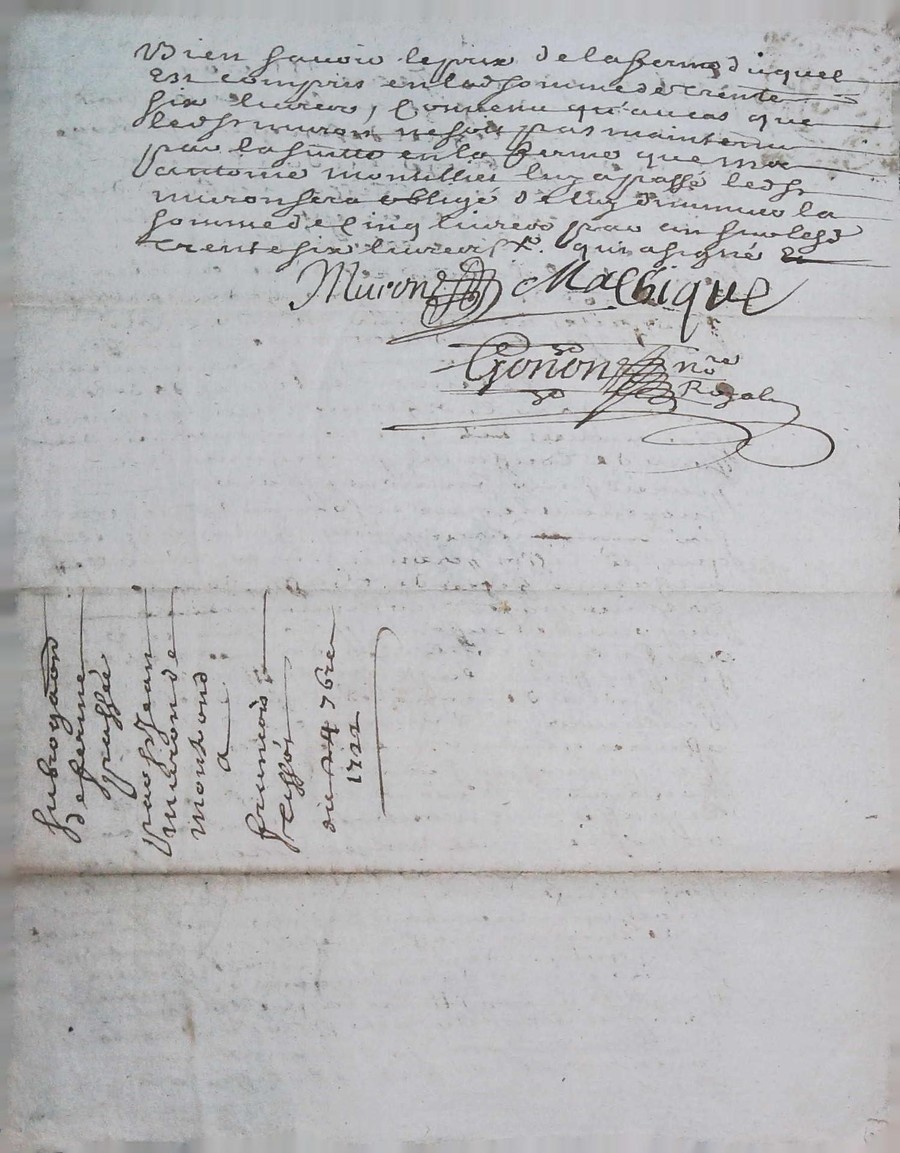 Bien savoir le prix de la ferme duquel
est compris en lad somme de trente
six livres, convenu qu'au cas que
led sr muron ne soit pas maintenu
par la suitte en la ferme que
antoine luy a passé led sr
muron sera obligé de luy diminuer la
somme de cinq livres par an sur lesd
trente six livres qui a signé
Muron Malhique
Gonon nre
Royal
Subrogaon
de ferme
passée
par sr Jean
muron de
montrond
a
francois
peyssot
du 7bre
1722